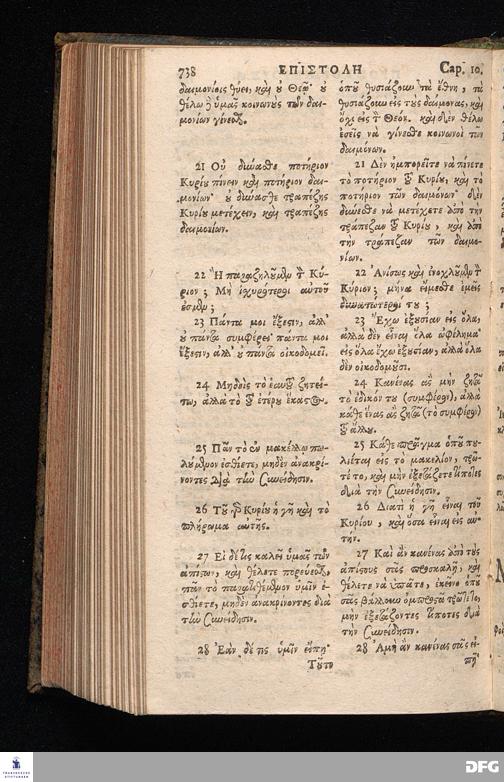 738 ΕΠΙΣΤΟΛΗ Cap. 10.
δαιμονίοις θύει, καὶ οὐ Θεῷ· οὐ
θέλω δὲ ὑμᾶς κοινωνοὺς τῶν δαι-
μονίων γίνεσθαι.
21 Οὐ δύνασθε ποτήριον
Κυρίου πίνειν καὶ ποτήριον δαι-
μονίων· οὐ δύνασθε τραπέζης
Κυρίου μετέχειν, καὶ τραπέζης
δαιμονίων.
22 Ἢ παραζηλοῦμεν τὸν Κύ-
ριον; Μὴ ἰσχυρότεροι αὐτοῦ
ἐσμεν;
23 Πάντα μοι ἔξεστιν, ἀλλ'
οὐ πάντα συμφέρει· πάντα μοι
ἔξεστιν, ἀλλ' οὐ πάντα οἰκοδομεῖ.
24 Μηδεὶς τὸ ἑαυτοῦ ζητεί-
τω, ἀλλὰ τὸ τοῦ ἑτέρου ἕκαστος.
25 Πᾶν τὸ ἐν μακέλλῳ πω-
λούμενον ἐσθίετε, μηδὲν ἀνακρί-
νοντες διὰ τὴν συνείδησιν.
26 Τοῦ γὰρ Κυρίου ἡ γῆ καὶ τὸ
πλήρωμα αὐτῆς.
27 Εἰ δέ τις καλεῖ ὑμᾶς τῶν
ἀπίστων, καὶ θέλετε πορεύεσθαι,
πᾶν τὸ παρατιθέμενον ὑμῖν ἐ-
σθίετε, μηδὲν ἀνακρίνοντες διὰ
τὴν συνείδησιν.
28 Ἐὰν δέ τις ὑμῖν εἴπῃ·
Τοῦτο
ὁποῦ θυσιάζουν τὰ ἔθνη, τὰ
θυσιάζουν εἰς τοὺς δαίμονας, καὶ
ὄχι εἰς τὸν Θεόν. καὶ δὲν θέλω
ἐσεῖς νὰ γίνεσθε κοινωνοὶ τῶν
δαιμόνων.
21 Δὲν ἠμπορεῖτε νὰ πίνετε
τὸ ποτήριον τοῦ Κυρίου, καὶ τὸ
ποτήριον τῶν δαιμόνων· δὲν
δύνεσθε νὰ μετέχετε ἀπὸ τὴν
τράπεζαν τοῦ Κυρίου, καὶ ἀπὸ
τὴν τράπεζαν τῶν δαιμο-
νίων.
22 Ἀνίσως καὶ ἐνοχλοῦμεν τὸν
Κύριον; μήνα εἴμεσθε ἐμεῖς
δυνατώτεροί του;
23 Ἔχω ἐξουσίαν εἰς ὅλα,
ἀλλὰ δὲν εἶναι ὅλα ὠφέλημα·
εἰς ὅλα ἔχω ἐξουσίαν, ἀλλὰ ὅλα
δὲν οἰκοδομοῦσι.
24 Κανένας ἂς μὴν ζητᾷ
τὸ ἐδικόν του (συμφέρον), ἀλλὰ
κάθε ἕνας ἂς ζητᾷ (τὸ συμφέρον)
τοῦ ἄλλου.
25 Κάθε πρᾶγμα ὁποῦ που-
λιέται εἰς τὸ μακελίον, τρώ-
τέ το, καὶ μὴν ἐξετάζετε τίποτες
διὰ τὴν συνείδησιν.
26 Διατὶ ἡ γῆ εἶναι τοῦ
Κυρίου, καὶ ὅσα εἶναι εἰς αὐ-
τήν.
27 Καὶ ἂν κανένας ἀπὸ τοὺς
ἀπίστους σᾶς προσκαλῇ, καὶ
θέλετε νὰ ὑπᾶτε, ἐκεῖνο ὁποῦ
σᾶς βάλλουν ὀμπροστὰ τρώγετε,
μὴν ἐξετάζοντες τίποτες διὰ
τὴν συνείδησιν.
28 Ἀμὴ ἂν κανένας σᾶς εἰ-
πῇ·
DFG